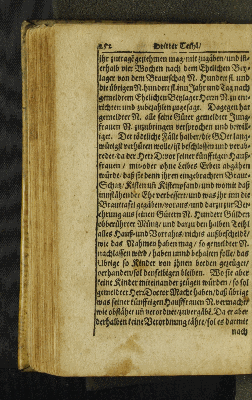 252 Dritter Theil/
ihr zutrage genehmen mag/ mit zugaben/ und in-
nerhalb vier Wochen nach dem Ehelichen Bey-
lager von dem Brautschatz N. Hundert fl. und
die übrigen N. hundert fl. in Jahr und Tag nach
gemeldtem Ehelichen Beylager Herrn N. zu ent-
richten und zubezahlen zugesagt. Dagegen hat
gemeldter N. alle seine Güter gemeldter Jung-
frauen N. zuzubringen versprochen und bewilli-
get. Der tödtlichen Fälle halber/ die Gott lang-
würigst verhüten wolle/ ist beschlossen und verab-
redet/ da Herr D. vor seiner künfftigen Hauß-
frauen/ mit oder ohne Leibes Erben abgehen
würde/ daß sie denn ihren eingebrachten Braut-
Schatz/ Kisten und Kistenpfand/ und womit daß
und was ihr in die
Brautafel gegeben/ voraus/ und darzu zur Ver-
ehrung aus seinen Gütern N. Hundert Gülden
obberührter Müntz/ und darzu den halben Theil
alles Hauß- und Vorraths/ nichts außbescheiden/
wie das Nahmen haben mag/ so gemeldter N.
nachlassen wird/ haben und behalten solle/ das
Übrige so Kinder von ihnen beeden gezeuget/
verhanden/ sol denselbigen bleiben. Wo sie aber
keine Kinder miteinander zeugen würden/ so sol
gemeldter Herr Doctor Macht haben/ daß übrige
was seiner künfftigen Haußfrauen N. vermacht/
wie obstehet/ zu verordnen/ zuvergäbe. Da er aber
derhalben keine Verordnung thäte/ sol es darmit
nach